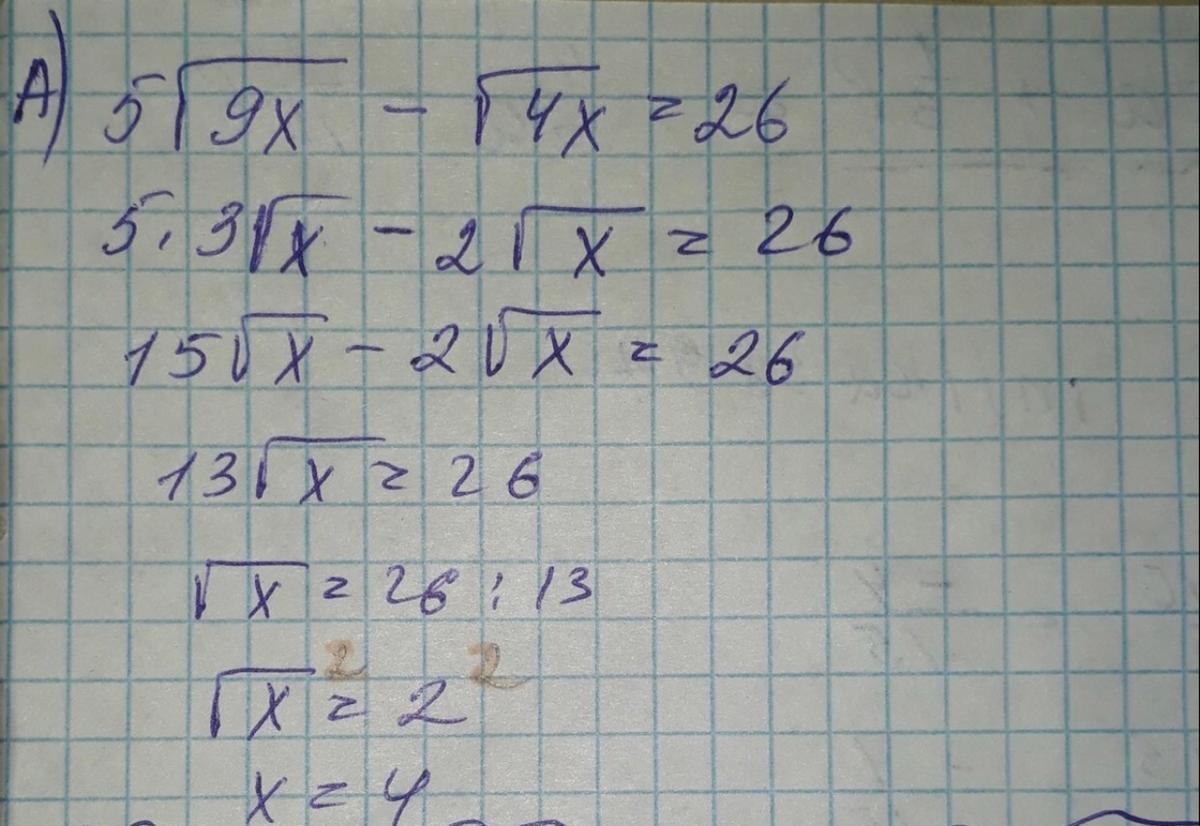 А) 5√9x - √4x = 26
5·3√x - 2√x = 26
15√x - 2√x = 26
13√x = 26
√x = 26 : 13
√x² = 2²
x = 4